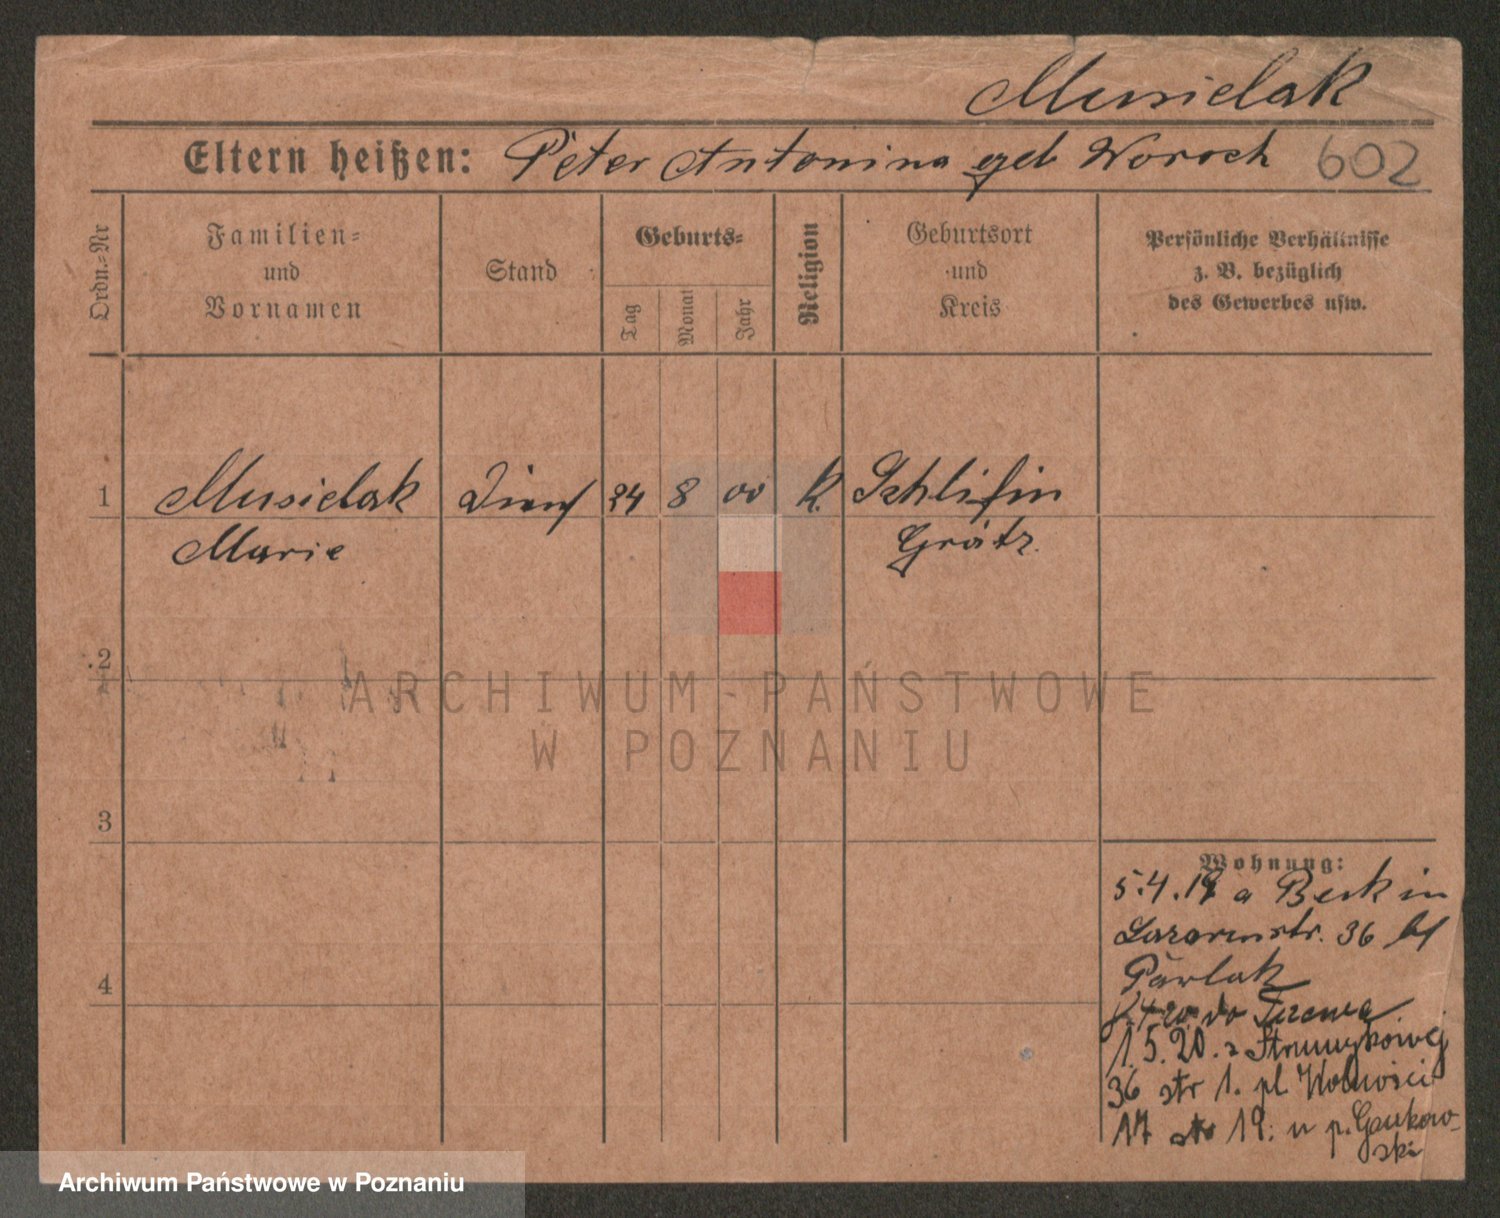 Musielak
Eltern heißen: Peter Antonina geb Woroch 602
Ordn.-Nr
Familien-
und
Vornamen
Stand
Geburts-
Tag
Monat
Jahr
Religion
Geburtsort
und
Kreis
Persönliche Verhältnisse
z. B. bezüglich
des Gewerbes usw.
1 Musielak 24 8 00 k. Schlifin
Marie Grätz.
2
3
4
Wohnung:
5.4.19 a Berkin
Lazarusstr. 36 bf
Parlak
do
1.5.20. z Strumykowej
36 str 1. pl Wolności
17 str 19. u p. Gaukow-
ski
ARCHIWUM PAŃSTWOWE
W POZNANIU
Archiwum Państwowe w Poznaniu